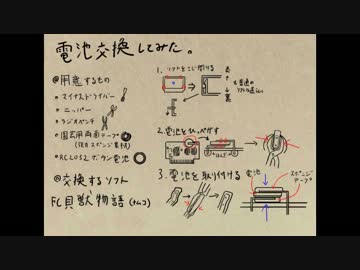 電池交換してみた。
@用意するもの
・マイナスドライバー
・ニッパー
・ラジオペンチ
・固定用両面テープ
・RC2032 ボタン電池
@交換するソフト
FC 貝獣物語 (ナムコ)
1. ソフトをこじ開ける
表
裏
2. 電池をひっぺがす
3. 電池を取り付ける
電池
スポンジ
テープ